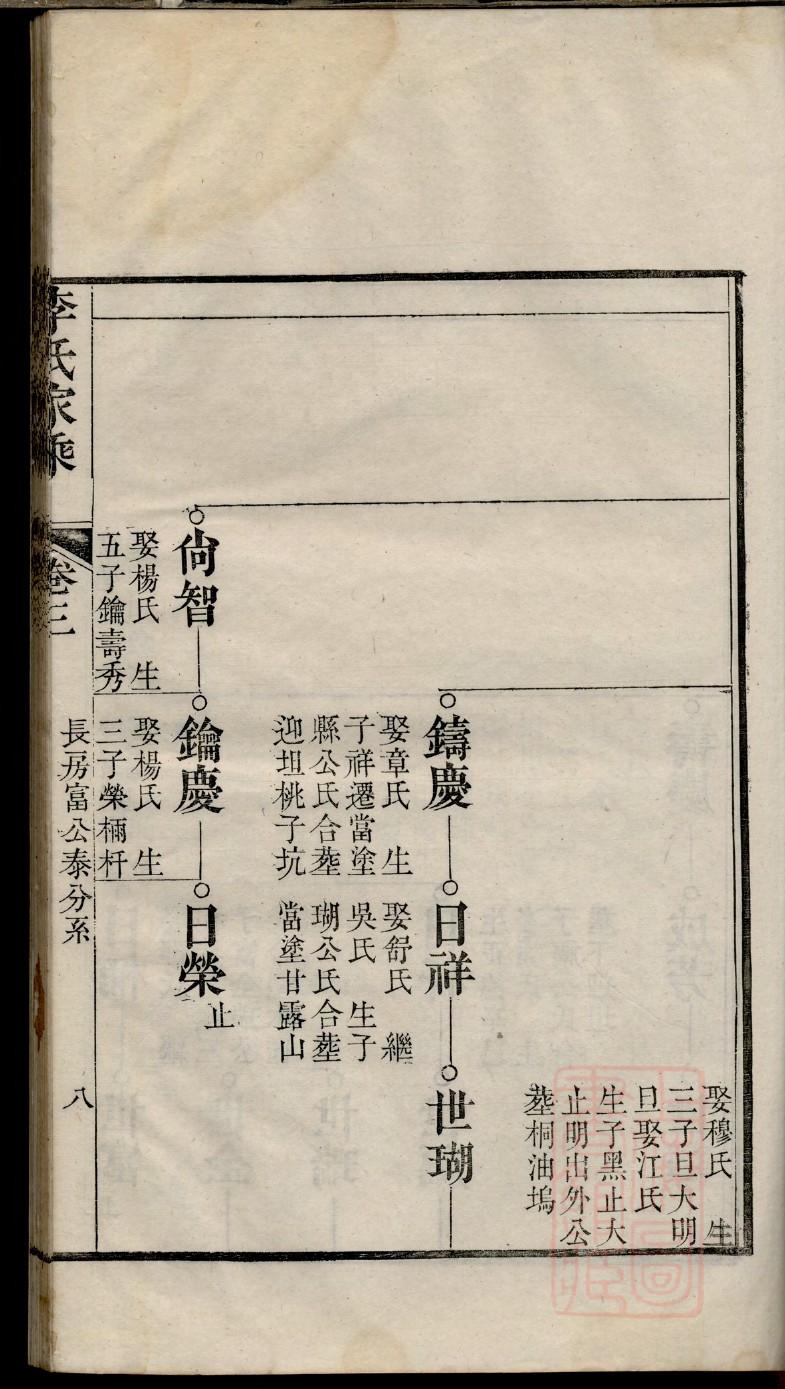 娶穆氏 生
三子旦大明
旦娶江氏
生子黑止大
止明出外公
塟桐油塢
鑄慶
娶章氏 生
子祥遷當塗
縣公氏合塟
迎坦桃子坑
日祥
娶舒氏 繼
吳氏 生子
瑚公氏合塟
當塗甘露山
世瑚
尙智
娶楊氏 生
五子鑰壽秀
鑰慶
娶楊氏 生
三子榮栭杆
日榮
止
李氏家乘
卷三
長房富公泰分系
八